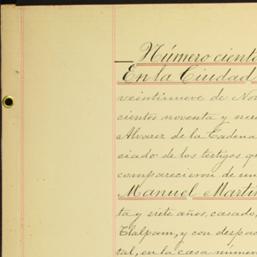 Número ciento
En la Ciudad
veintinueve de Nov
cientos noventa y nue
Alvarez de la Cadena
ciado de los testigos qu
comparecieron de un
Manuel Martín
ta y siete años, casado,
Tlalpam, y con despac
tal, en la casa númer